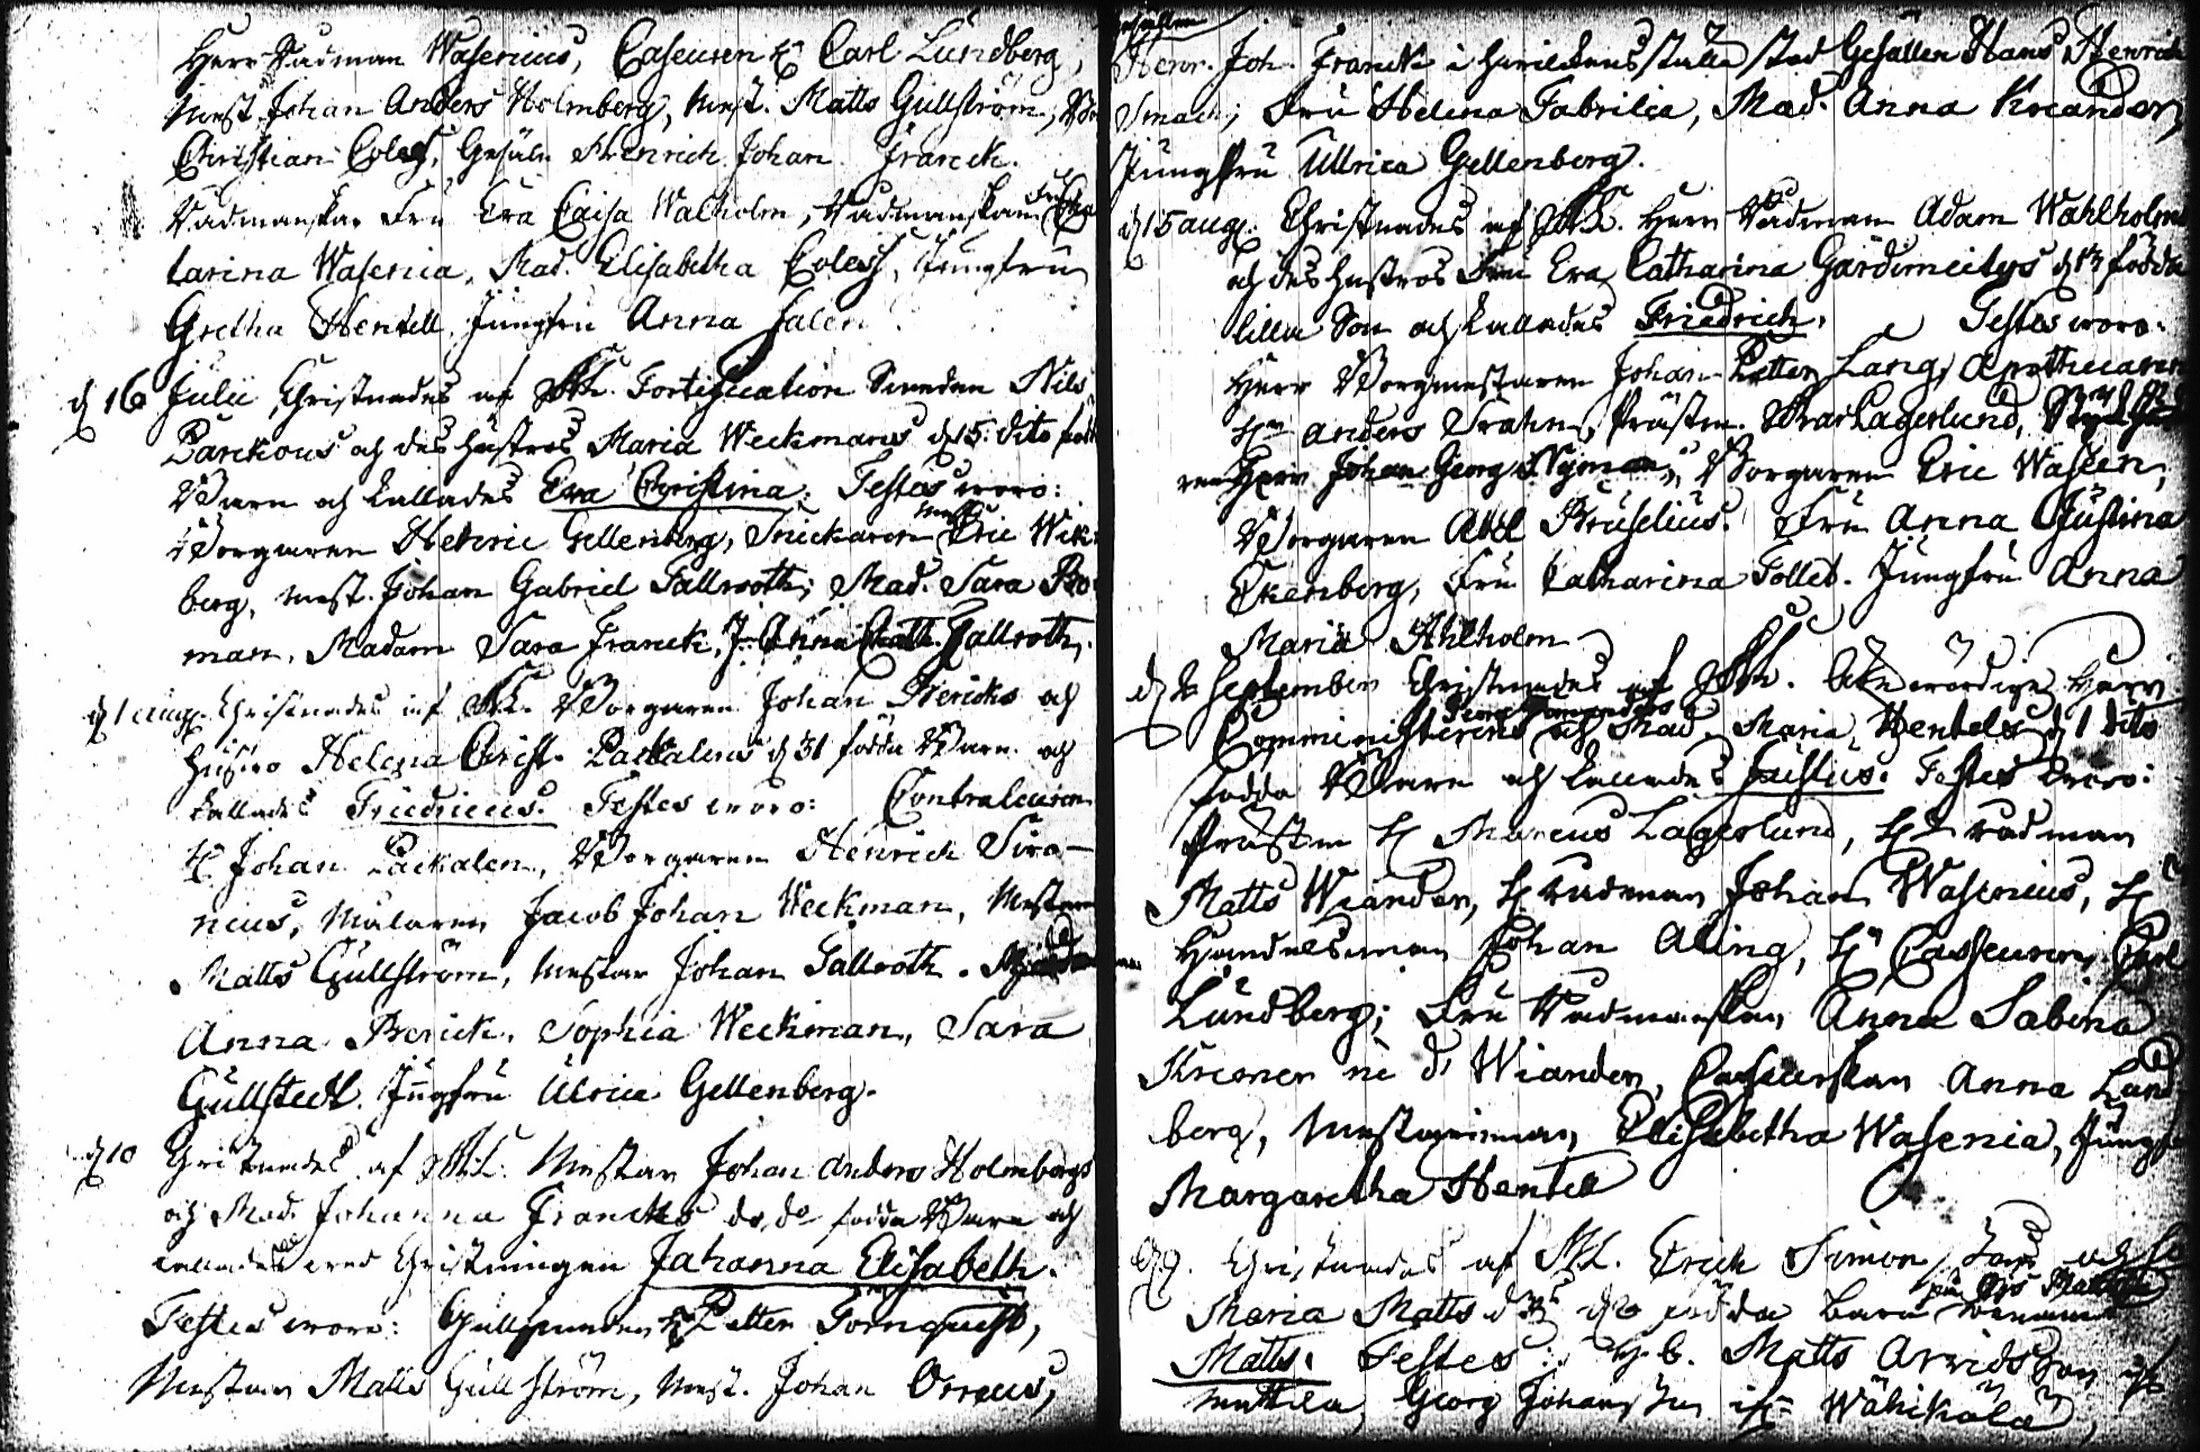 Herr Rådman Wasenius, Casseuren Hr Carl Lundberg,
Mest. Johan Anders Holmberg, Mest. Matts Gullström,
Christian Coless, Gesäln Henrich Johan Franck.
Rådmanskan Fru Eva Caisa Walholm, Rådmanskan Fru Ca
tarina Wasenia, Mad. Elisabetha Coless, Jungfru
Gretha Hentell, Jungfru Anna Salen
d 16 Julii Christnades af Fortification Smeden Nils
Barckous och des hustros Maria Weckmans d 15. dito född
Barn och kallades Eva Christina. Testes woro:
Borgaren Henric Gellenberg, Snickaren Mest. Eric Wik:
berg, Mest. Johan Gabriel Tallrooth; Mad. Sara Bo-
man, Madam Sara Franck, J. Anna Cath. Tallroth.
d 1 aug. Christnades af Borgaren Johan Bericks och
hustro Helena Christ. Packalens d 31 födda Barn och
kallades Friedricus. Testes woro: Contraleuren
H. Johan Packalen, Borgaren Henrich Siro-
nius, Målaren Jacob Johan Weckman, Mestaren
Matts Gullström, Mestar Johan Tallroth.
Anna Berick, Sophia Weckman, Sara
Gullstedt. Jungfru Ulrica Gellenberg.
d 10 Christnades af Mestar Johan Anders Holmbergs
och Mad. Johanna Francks do do födda Barn och
kallades wid Christningen Johanna Elisabeth.
Testes woro: Gullsmeden Hr Petter Törnquist,
Mestar Matts Gullström, Mest. Johan Orraeus,
Gesällen
Henr. Joh. Franck i hwilkens ställe stod Gesällen Hans Henrich
Smach; Fru Helena Fabrilia, Mad. Anna Kreander,
Jungfru Ullrica Gellenberg.
d 15 aug. Christnades af Herr Rådman Adam Wahlholms
och des hustros Fru Eva Catharina Gärdmeijers d 13 födda
lilla Son och kallades Friedrich. Testes woro:
Herr Borgmestaren Johan Petter Lang, Apothecaren
Hr Anders Prästen Lagerlund,
Herr Johan Georg Nyman, Borgaren Eric Waseen,
Borgaren Abel Bruselius. Fru Anna Justina
Ekenberg, Fru Catharina Tollet. Jungfru Anna
Maria Ahlholm
d 2 September Christnades af Ährewördige Herr
Comministerens och Mad. Maria Hentels d 1 dito
födda Barn och kallades Justus. Testes woro:
Prästen H Marcus Lagerlund, Hr rådman
Matts Wiander, H rådman Johan Wasenius, H
Handelsman Johan Aling, Hr Casseuren Carl
Lundberg; Fru Rådmanskan Anna Sabina
Kreaner né d: Wiander, Casseurskan Anna Lund
berg, Mestarinnan Elisabetha Wasenia, Jungfr
Margaretha Hentell
d 9. Christnades af Erich Simon Sons och
Maria Matts födda Barn
Matts. Testes: Matts Arvidsson
Mattila, Georg Johansson Wähikälä,